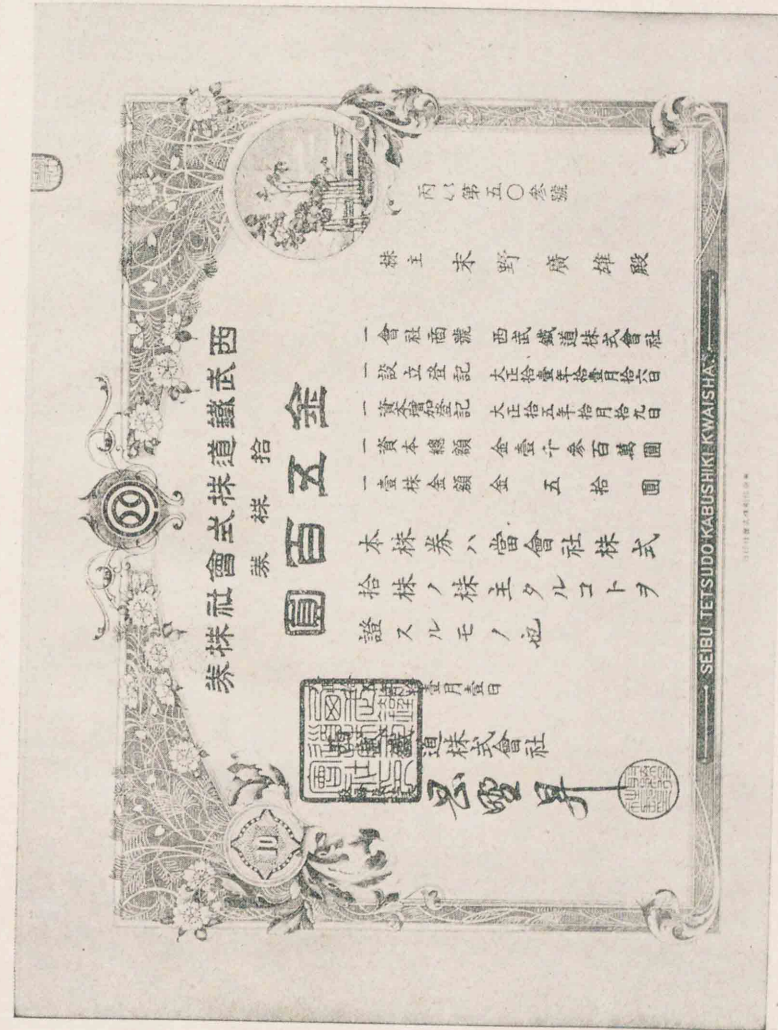 西武鐵道株式會社株券
拾株券
金五百圓
丙い第五〇参號
株主 末野廣雄殿
一會社商號 西武鐵道株式會社
一設立登記 大正拾壹年拾壹月拾六日
一資本增加登記 大正拾五年拾月拾九日
一資本總額 金壹千参百萬圓
一壹株金額 金五拾圓
本株券ハ當會社株式
拾株ノ株主タルコトヲ
證スルモノ也
壹月壹日
西武鐵道株式會社
10
SEIBU TETSUDO KABUSHIKI KWAISHA.